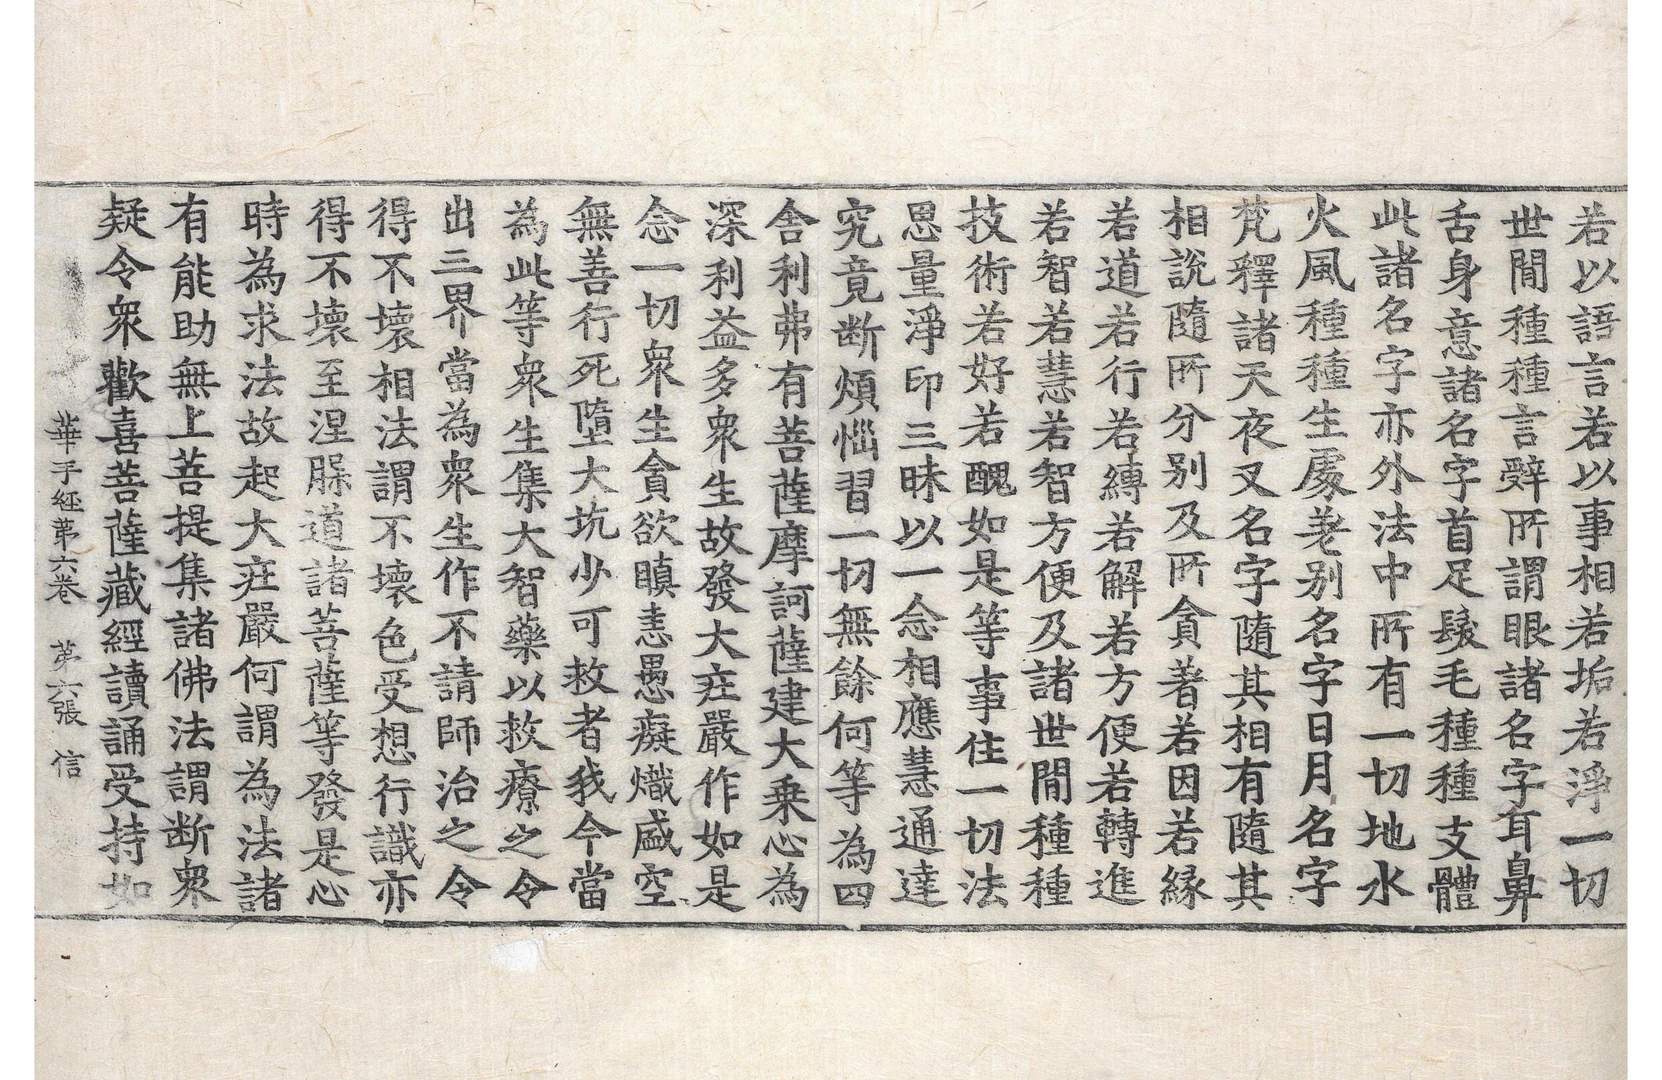 若以語言若以事相若垢若淨一切
世間種種言辝所謂眼諸名字耳鼻
舌身意諸名字首足髮毛種種支體
此諸名字亦外法中所有一切地水
火風種種生處差別名字日月名字
梵釋諸天夜叉名字隨其相有隨其
相說隨所分別及所貪著若因若緣
若道若行若縛若解若方便若轉進
若智若慧若智方便及諸世間種種
技術若好若醜如是等事住一切法
思量淨印三昧以一念相應慧通達
究竟断煩惱習一切無餘何等為四
舍利弗有菩薩摩訶薩建大乗心為
深利益多衆生故發大莊嚴作如是
念一切衆生貪欲瞋恚愚癡熾盛空
無善行死墮大坑少可救者我今當
為此等衆生集大智藥以救療之令
出三界當為衆生作不請師治之令
得不壞相法謂不壞色受想行識亦
得不壞至涅脲道諸菩薩等發是心
時為求法故起大莊嚴何謂為法諸
有能助無上菩提集諸佛法謂断衆
疑令衆歡喜菩薩藏經讀誦受持如
華手經第六卷　第六張　信